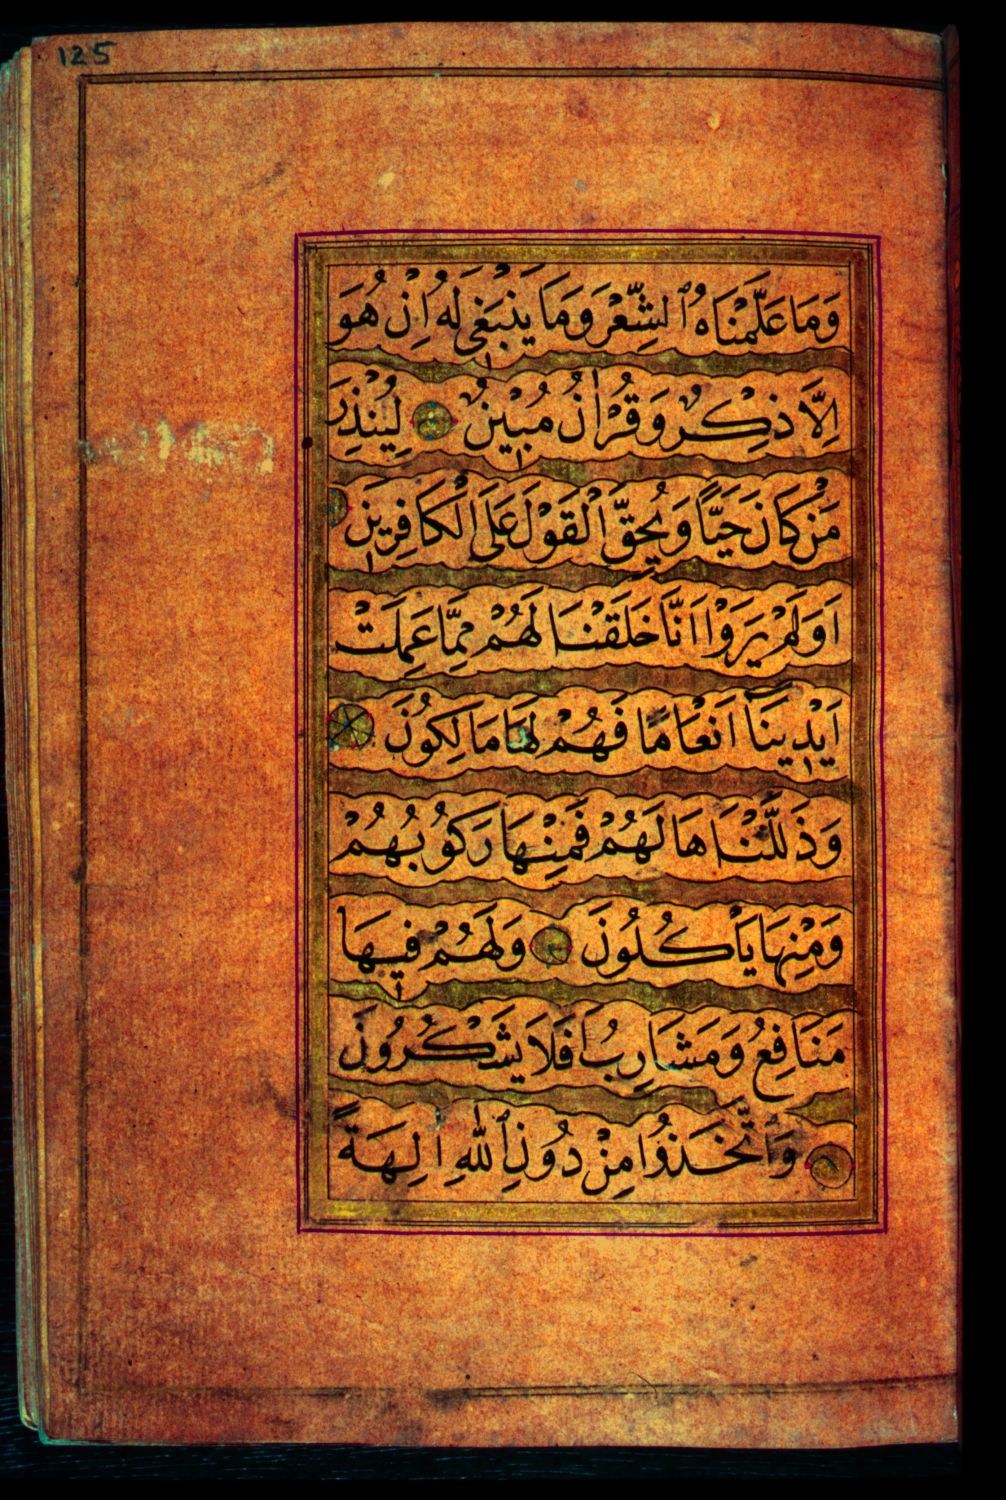 125
وَمَا عَلَّمْنَاهُ ٱلشِّعْرَ وَمَا يَنْبَغِى لَهُ اِنْ هُوَ
اِلَّا ذِكْرٌ وَقُرْاٰنٌ مُبِينٌ لِيُنْذِرَ
مَنْ كَانَ حَيًّا وَيَحِقَّ الْقَوْلُ عَلَى الْكَافِرِينَ
اَوَلَمْ يَرَوْا اَنَّا خَلَقْنَا لَهُمْ مِمَّا عَمِلَتْ
اَيْدِينَآ اَنْعَامًا فَهُمْ لَهَا مَالِكُونَ
وَذَلَّلْنَاهَا لَهُمْ فَمِنْهَا رَكُوبُهُمْ
وَمِنْهَا يَأْكُلُونَ وَلَهُمْ فِيهَا
مَنَافِعُ وَمَشَارِبُ اَفَلَا يَشْكُرُونَ
وَٱتَّخَذُوا مِنْ دُونِ ٱللّٰهِ اٰلِهَةً